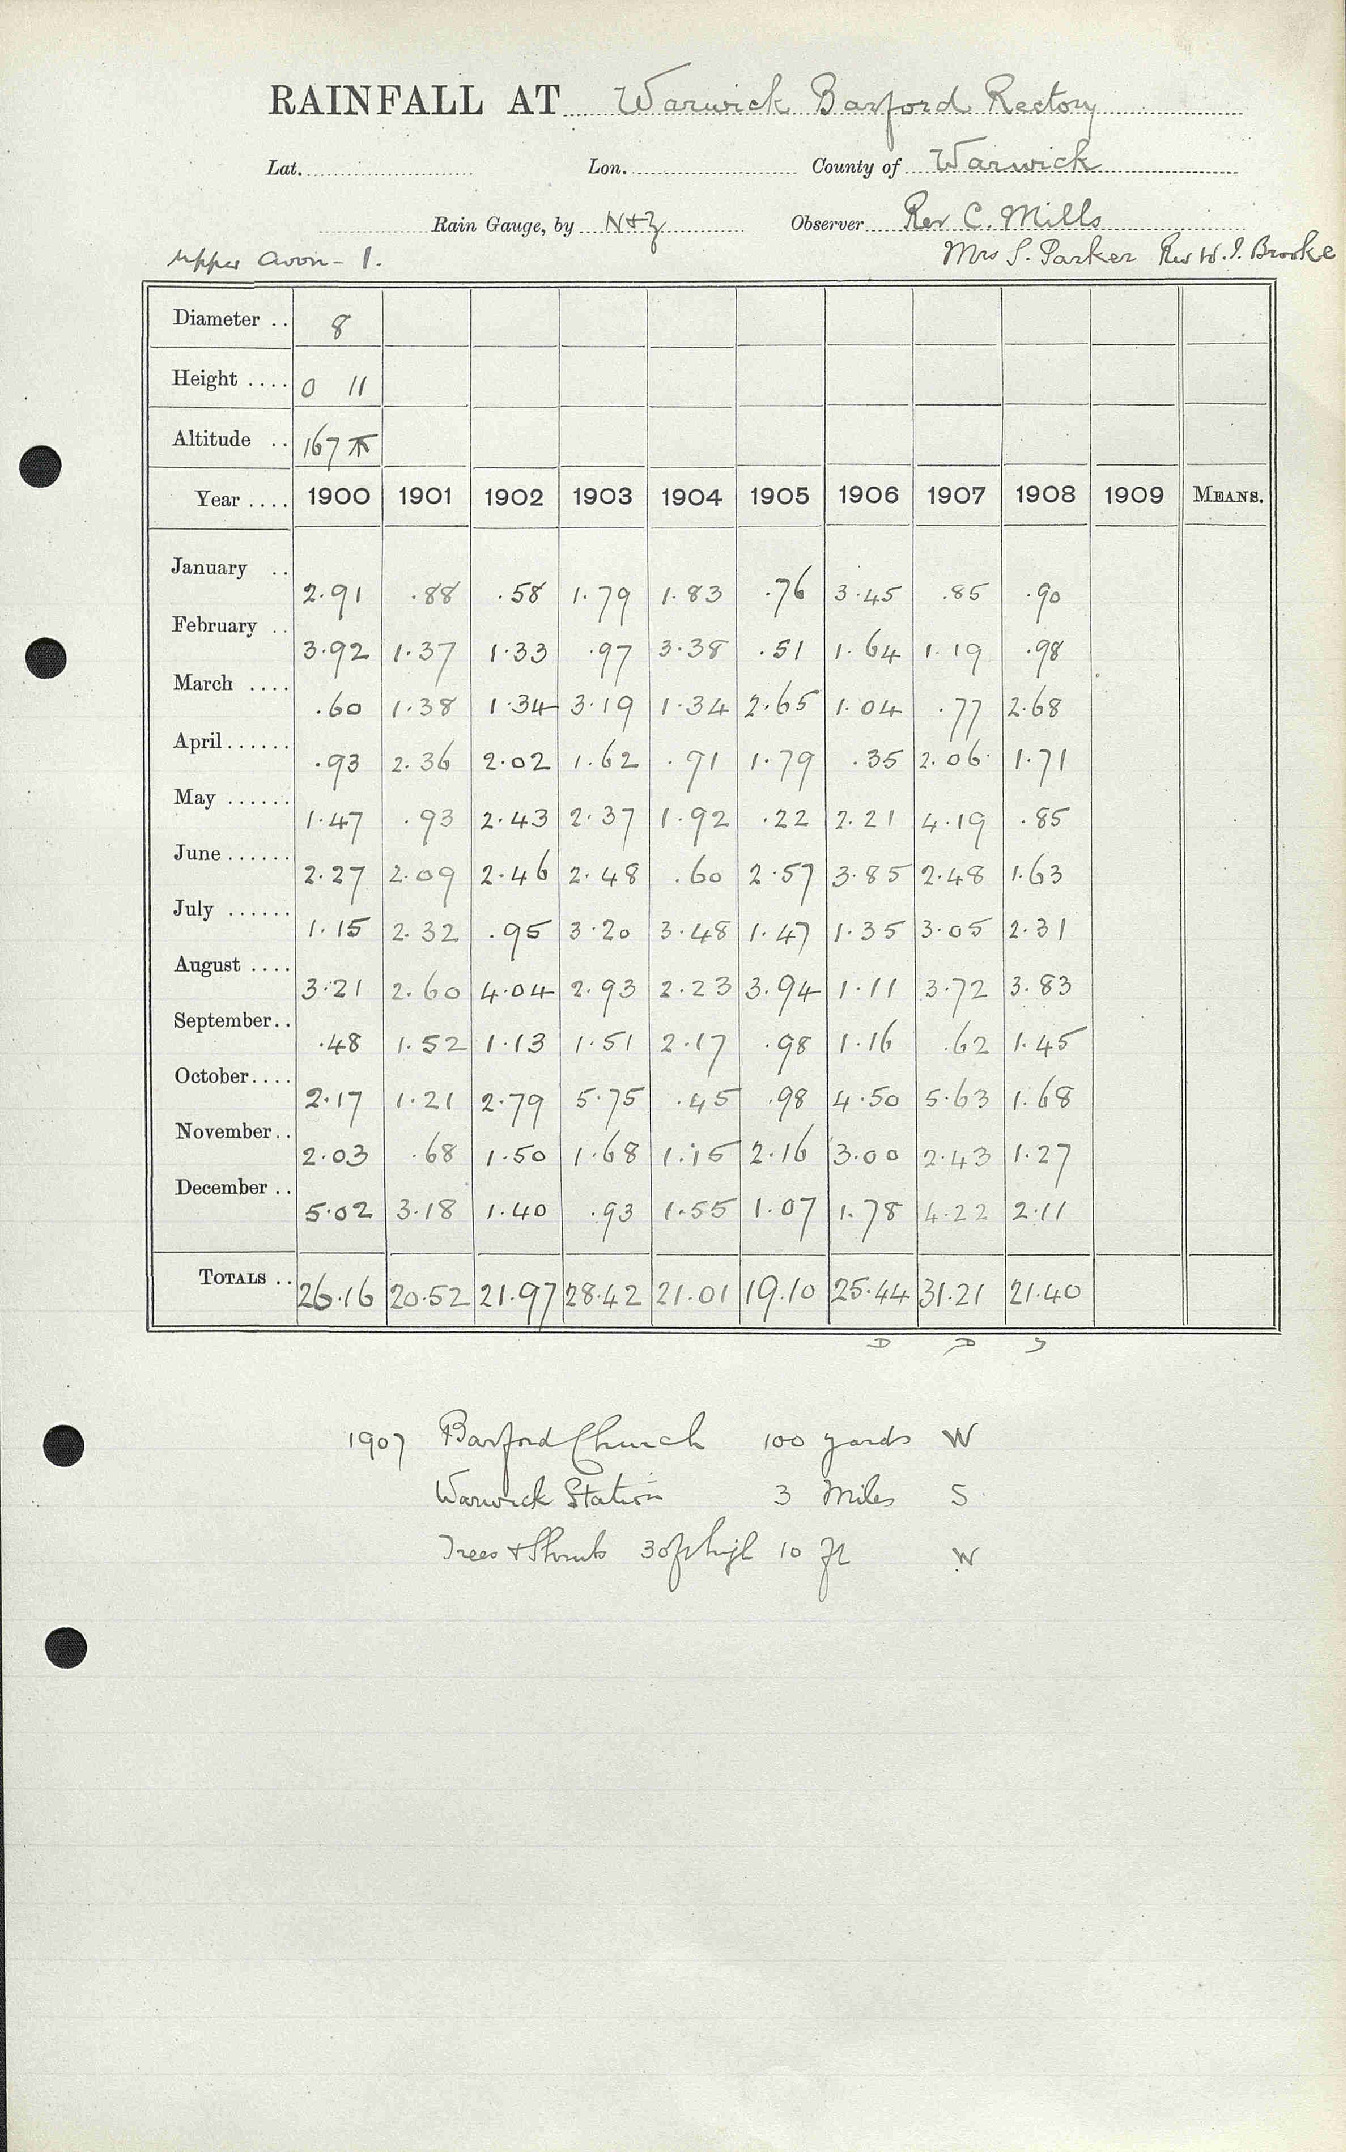 RAINFALL AT Warwick Barford Rectory
Lat. Lon. County of Warwick
Rain Gauge, by N+Z Observer Rev C. Mills
Upper Avon - 1. Mrs S. Parker Rev W. J. Brooke
Diameter .. 8
Height .... 0 11
Altitude .. 167
Year .... 1900 1901 1902 1903 1904 1905 1906 1907 1908 1909 MEANS.
January .. 2.91 .88 .58 1.79 1.83 .76 3.45 .85 .90
February .. 3.92 1.37 1.33 .97 3.38 .51 1.64 1.19 .98
March .... .60 1.38 1.34 3.19 1.34 2.65 1.04 .77 2.68
April...... .93 2.36 2.02 1.62 .91 1.79 .35 2.06 1.71
May ...... 1.47 .93 2.43 2.37 1.92 .22 2.21 4.19 .85
June...... 2.27 2.09 2.46 2.48 .60 2.57 3.85 2.48 1.63
July ...... 1.15 2.32 .95 3.20 3.48 1.47 1.35 3.05 2.31
August .... 3.21 2.60 4.04 2.93 2.23 3.94 1.11 3.72 3.83
September.. .48 1.52 1.13 1.51 2.17 .98 1.16 .62 1.45
October.... 2.17 1.21 2.79 5.75 .45 .98 4.50 5.63 1.68
November.. 2.03 .68 1.50 1.68 1.15 2.16 3.00 2.43 1.27
December .. 5.02 3.18 1.40 .93 1.55 1.07 1.78 4.22 2.11
TOTALS .. 26.16 20.52 21.97 28.42 21.01 19.10 25.44 31.21 21.40
1907 Barford Church 100 yards W
Warwick Station 3 Miles S
Trees + Shrubs 30ft high 10 ft W